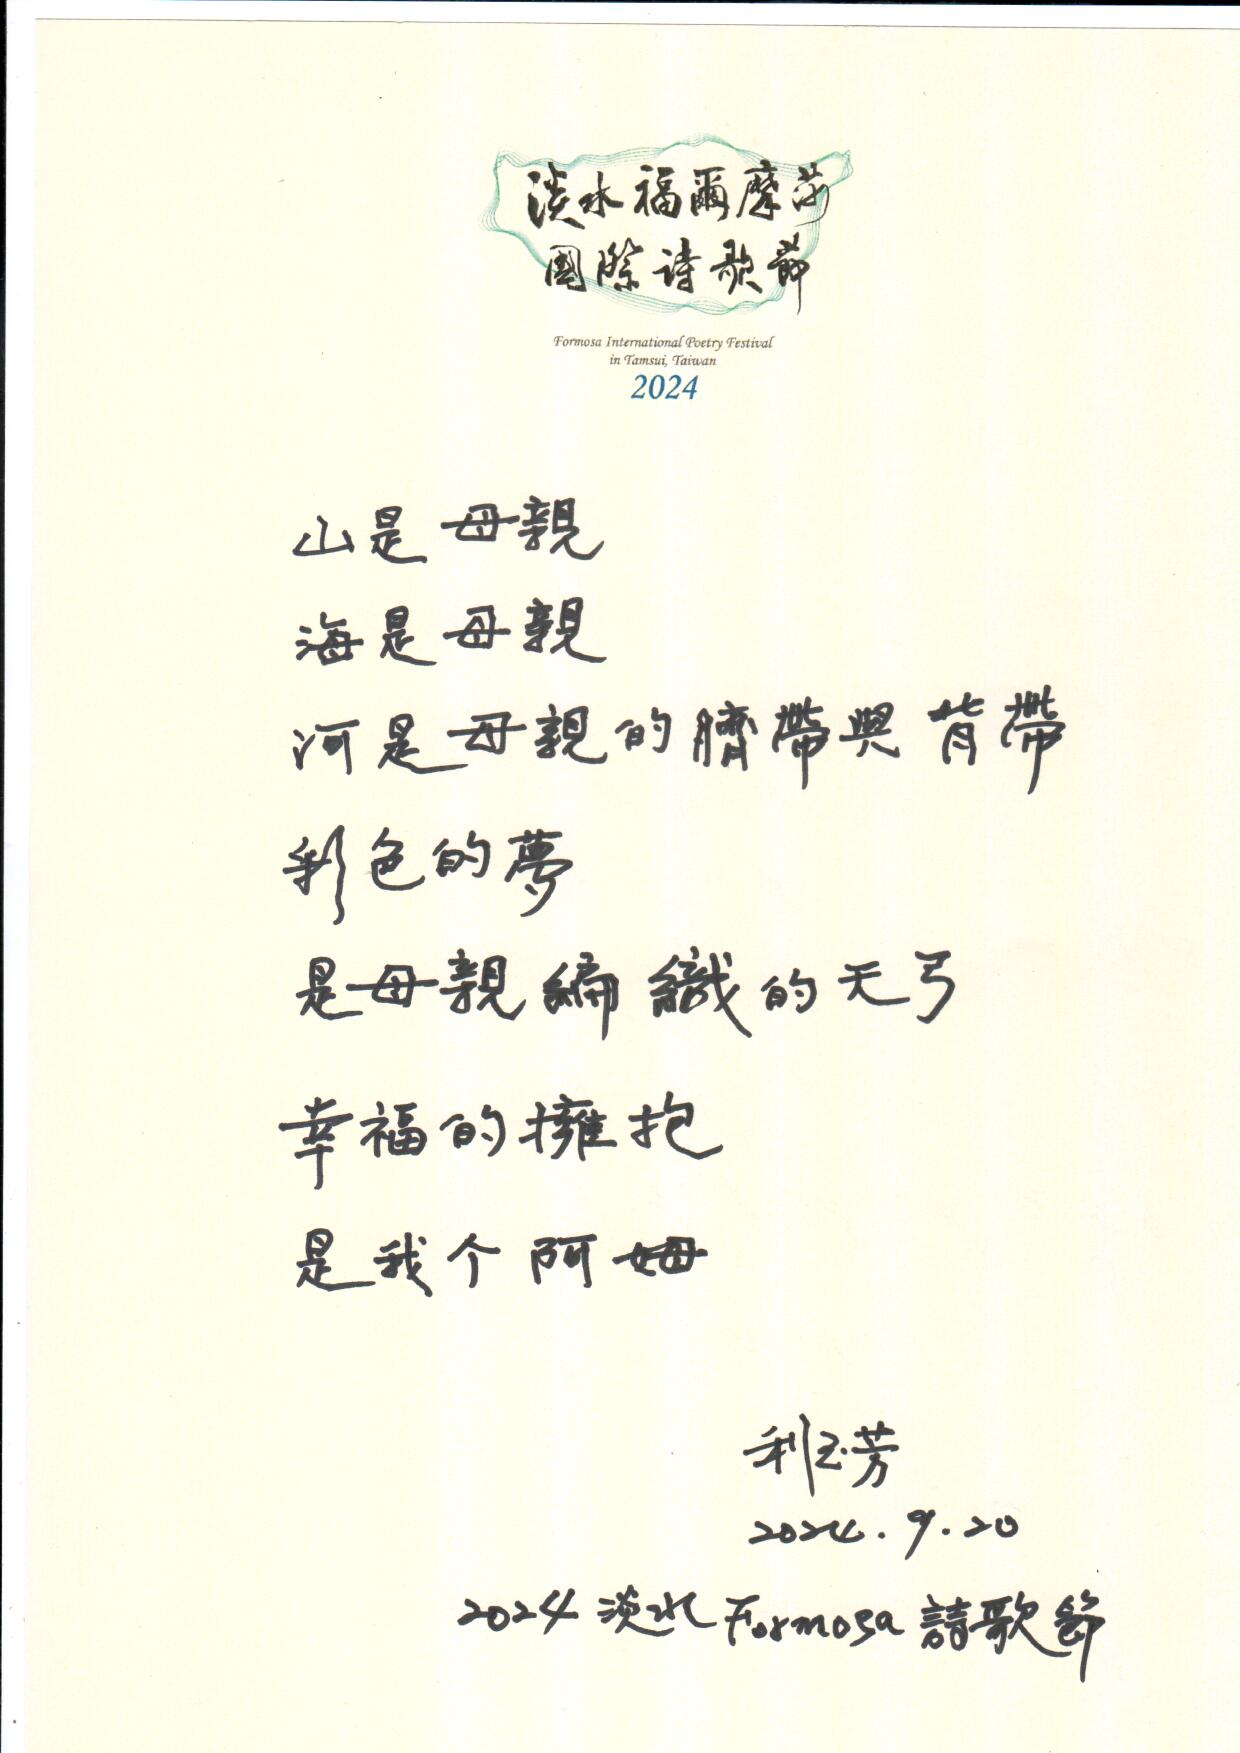 淡水福爾摩莎
國際詩歌節
Formosa International Poetry Festival
in Tamsui, Taiwan
2024
山是母親
海是母親
河是母親的臍帶與背帶
彩色的夢
是母親編織的天弓
幸福的擁抱
是我个阿姆
利玉芳
2024.9.20
2024 淡水 Formosa 詩歌節